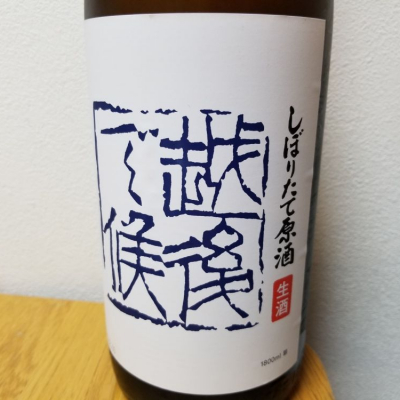 しぼりたて原酒
生酒
越後
で候
1800ml